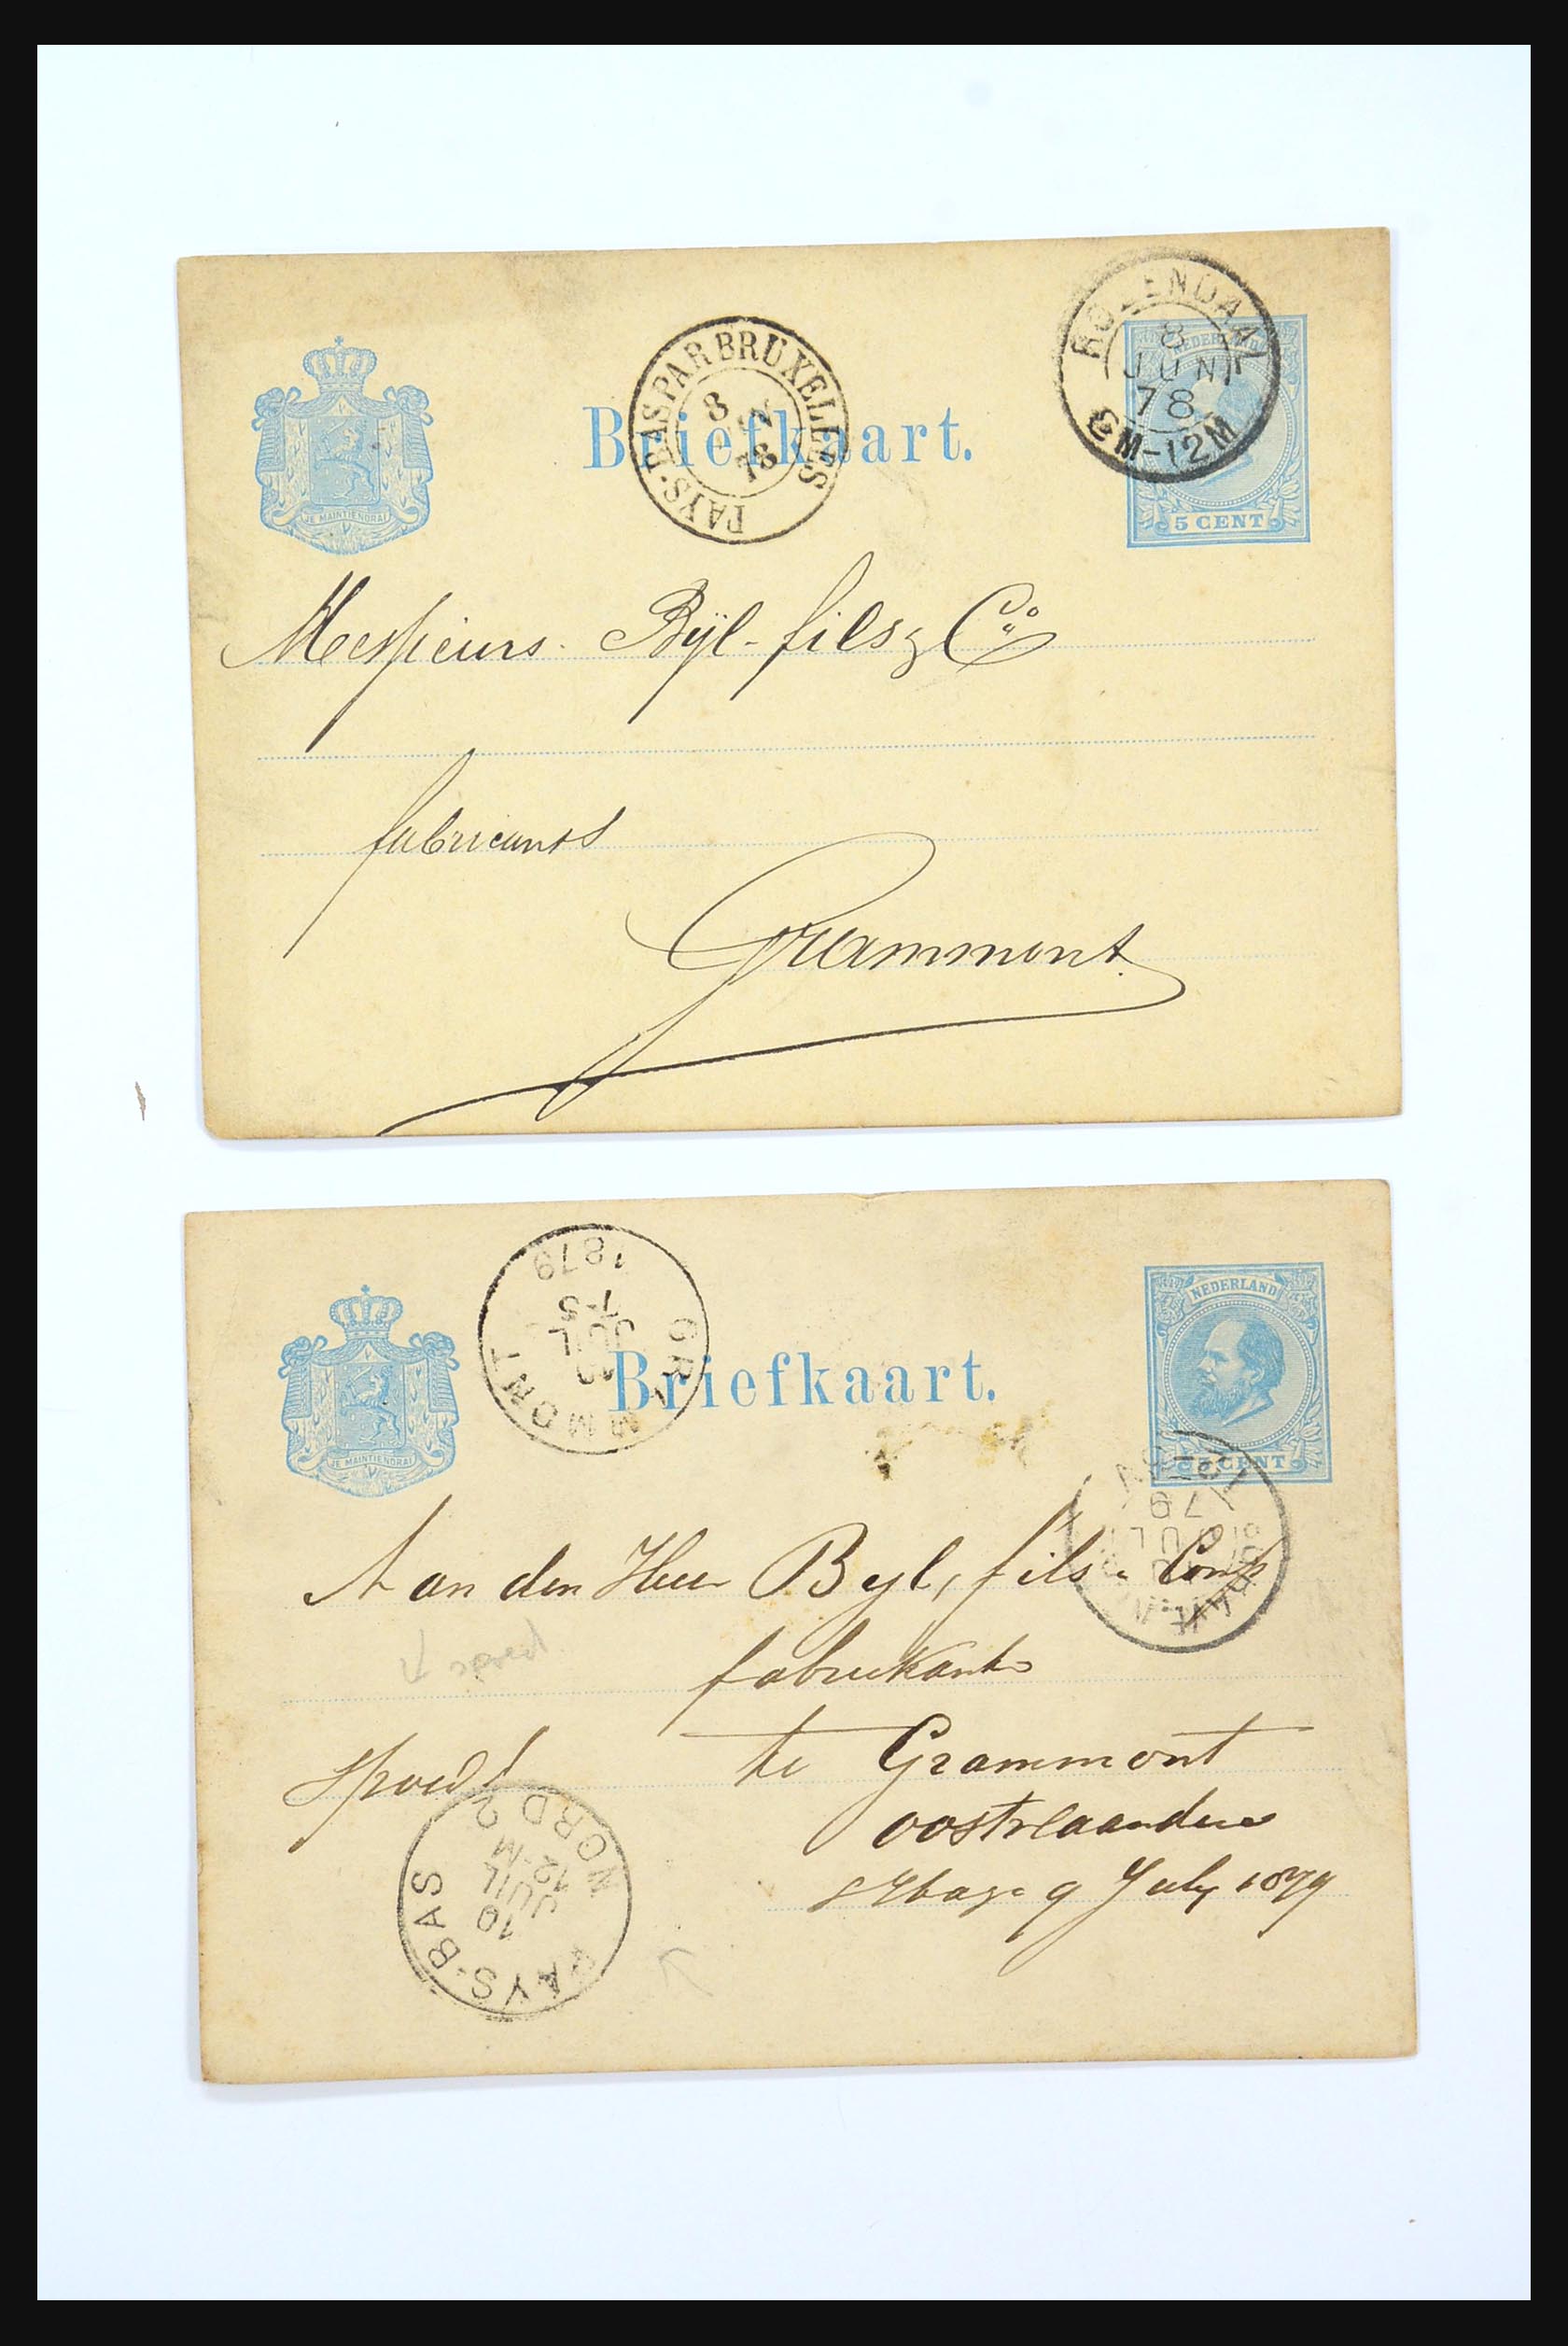 ROZENDAAL
8
JUN
78
9M-12M
PAYS-BAS PAR BRUXELLES
8
78
NEDERLAND
5 CENT
JE MAINTIENDRAI
Briefkaart.
Messieurs. Bijl-fils & Co
fabricants
Grammont.
GRAMMONT
10
JUIL
7-S
1879
NEDERLAND
5 CENT
JE MAINTIENDRAI
Briefkaart.
79
JUL
Aan den Heer Byl, fils & Comp
fabriekants
spoed
Spoed!
te Grammont
oostvlaanderen
s'Hage 9 July 1879
PAYS-BAS NORD 2
10
JUIL
12-M